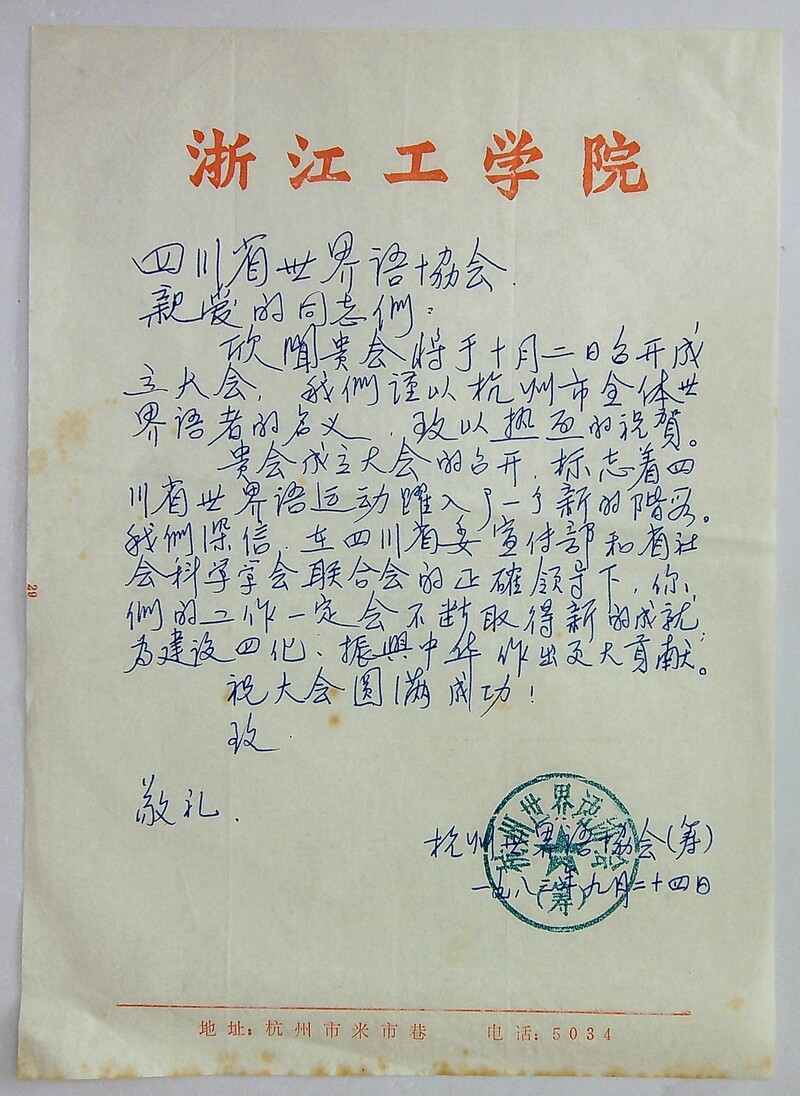 浙江工学院
四川省世界语协会.
亲爱的同志們：
欣聞贵会将于十月二日召开成
立大会，我們謹以杭州市全体世
界语者的名义，致以热烈的祝賀。
贵会成立大会的召开，标志着四
川省世界语运动躍入了一个新的階段。
我們深信，在四川省委宣传部和省社
会科学学会联合会的正確领导下，你
們的工作一定会不断取得新的成就，
为建设四化、振興中华作出更大貢献。
祝大会圆满成功！
致
敬礼.
杭州世界语协会(筹)
一九八三年九月二十四日
杭州世界语协会
(筹)
29
地址：杭州市米市巷 电话：5034